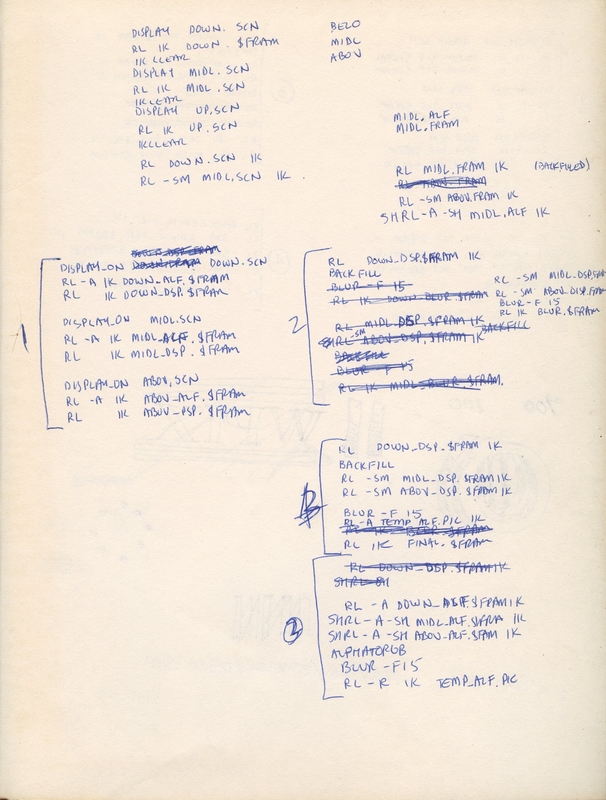 DISPLAY DOWN. SCN
RL IK DOWN. $FRAM
IKCLEAR
DISPLAY MIDL. SCN
RL IK MIDL. SCN
IKCLEAR
DISPLAY UP.SCN
RL IK UP. SCN
IKCLEAR
RL DOWN.SCN IK
RL -SM MIDL.SCN IK .
BELO
MIDL
ABOV
MIDL.ALF
MIDL.FRAM
RL MIDL.FRAM IK (BACKFILLED)
RL ABOV. FRAM
RL -SM ABOV.FRAM IK
SHRL-A -SH MIDL.ALF IK
1
DISPLAY_ON DOWN.SCN
RL -A IK DOWN_ALF.$FRAM
RL IK DOWN_DSP.$FRAM
DISPLAY_ON MIDL.SCN
RL -A IK MIDL_ALF.$FRAM
RL IK MIDL_DSP.$FRAM
DISPLAY_ON ABOV.SCN
RL -A IK ABOV_ALF.$FRAM
RL IK ABOV_DSP.$FRAM
2
RL DOWN_DSP.$FRAM IK
BACKFILL
BLUR -F 15
RL IK DOWN_BLUR.$FRAM
RL MIDL_DSP.$FRAM IK
SHRL -SM ABOV_DSP.$FRAM IK
BACKFILL
BACKFILL
BLUR -F 15
RL IK MIDL_BLUR.$FRAM.
RL -SM MIDL_DSP.$FRAM
RL -SM ABOV_DSP.FRAM
BLUR -F 15
RL IK BLUR.$FRAM
RL DOWN_DSP.$FRAM IK
BACKFILL
RL -SM MIDL_DSP.$FRAM IK
RL -SM ABOV_DSP.$FRAM IK
BLUR -F 15
RL -A TEMP_ALF.PIC IK
RL IK BLUR.$FRAM
RL IK FINAL.$FRAM
RL DOWN_DSP.$FRAM IK
2
RL -A DOWN_ .$FRAM IK
SHRL-A-SH MIDL_ALF.$FRA IK
SHRL-A-SH ABOV_ALF.$FAM IK
ALPHATORGB
BLUR -F15
RL -R IK TEMP_ALF.PIC